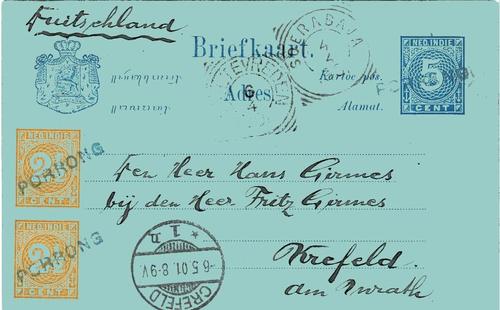 Duitschland
Briefkaart.
SOERABAJA
4
4
NED-INDIE
5
CENT
WELTEVREDEN
6
4
Kartoe pos.
Adres
Alamat.
NED-INDIE
2½
CENT
PORRONG
Den Heer Hans Girmes
bij den Heer Fritz Girmes
NED-INDIE
2½
CENT
PORRONG
Krefeld
am Inrath
CREFELD
* 1 n
-6.5.01.8-9V